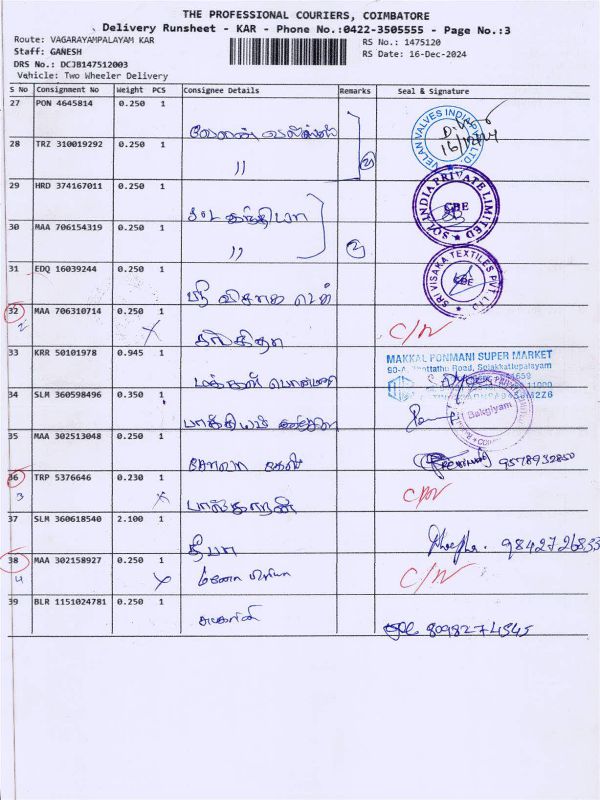 THE PROFESSIONAL COURIERS, COIMBATORE
Delivery Runsheet - KAR - Phone No.:0422-3505555 - Page No.:3
Route: VAGARAYAMPALAYAM KAR
RS No.: 1475120
Staff: GANESH
RS Date: 16-Dec-2024
DRS No.: DCJB147512003
Vehicle: Two Wheeler Delivery
S No Consignment No Weight PCS Consignee Details Remarks Seal & Signature
27 PON 4645814 0.250 1
VELAN VALVES INDIA
16/12/24
28 TRZ 310019292 0.250 1
" 2
29 HRD 374167011 0.250 1
SOL INDIA PRIVATE LIMITED
CBE
30 MAA 706154319 0.250 1
" 2
31 EDQ 16039244 0.250 1
ஸ்ரீ விசாகா டெக்
SRI VISAKA TEXTILES PVT. LTD
CBE
32 MAA 706310714 0.250 1
2 X C/N
33 KRR 50101978 0.945 1
மக்கள் பொன்மணி
MAKKAL PONMANI SUPER MARKET
90-A, Thottathu Road, Selakkattupalayam
34 SLM 360598496 0.350 1
பாக்கியம்
Bakgiyam
35 MAA 302513048 0.250 1
9578932850
36 TRP 5376646 0.230 1
3 X
37 SLM 360618540 2.100 1
தீபா
Dheepha. 9842726833
38 MAA 302158927 0.250 1
4 X மனோ பிரியா C/N
39 BLR 1151024781 0.250 1
8098274545